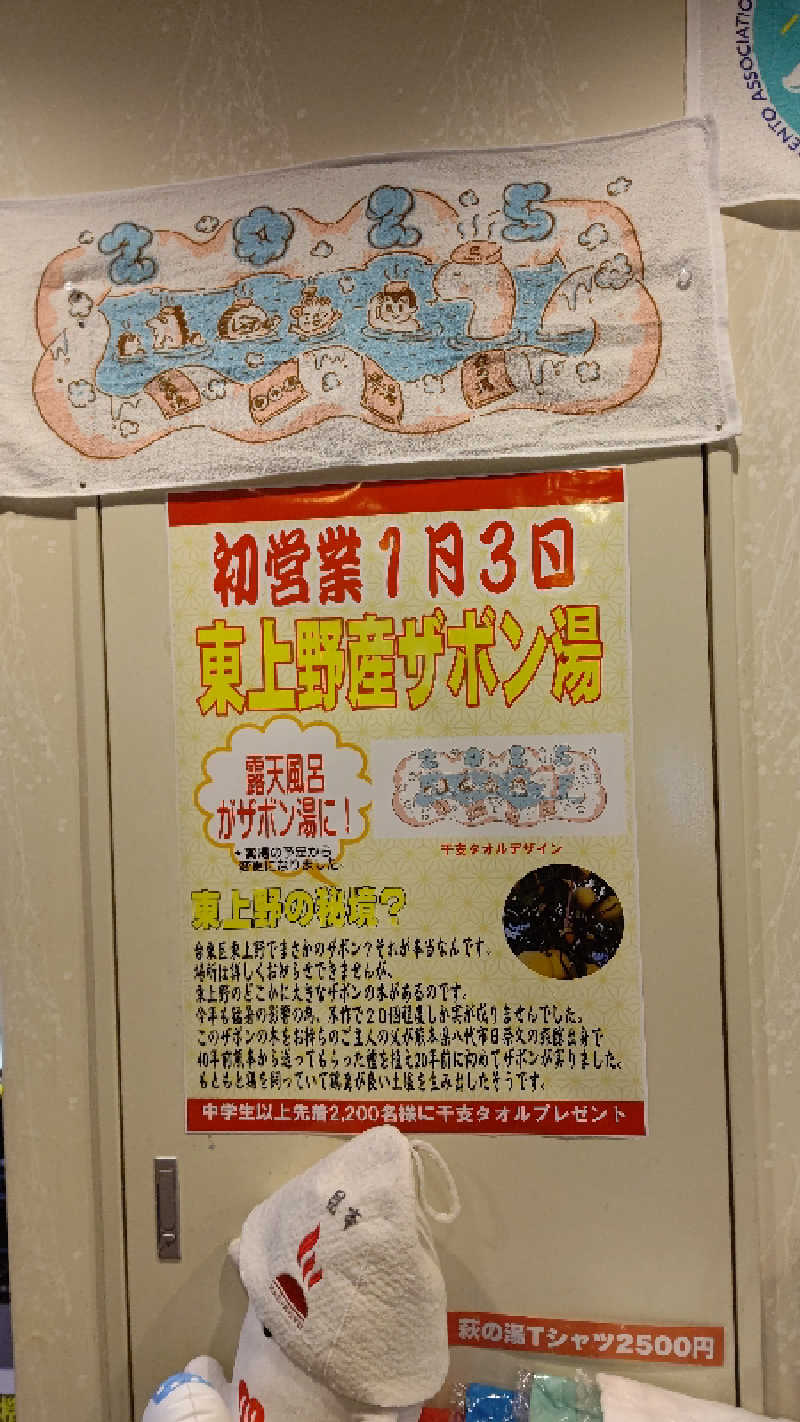 ENTO ASSOCIATIO
2025
初営業1月3日
東上野産ザボン湯
露天風呂
がザボン湯に！
変更になりました。
干支タオルデザイン
東上野の秘境？
台東区東上野でまさかのザボン？それが本当なんです。
場所は詳しくお知らせできませんが、
東上野のどこかに大きなザボンの木があるのです。
今年も猛暑の影響の為、不作で20個程度しか実が成りませんでした。
このザボンの木をお持ちのご主人の父が熊本県八代市日奈久の旅館出身で
40年前熊本から送ってもらった種を植え20年前に初めてザボンが実りました。
もともと鶏を飼っていて鶏糞が良い土壌を生み出したそうです。
中学生以上先着2,200名様に干支タオルプレゼント
萩の湯Tシャツ2500円